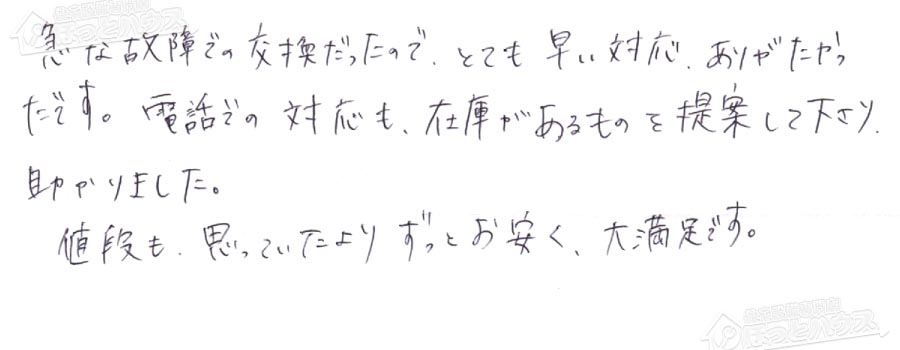 急な故障での交換だったので、とても早い対応、ありがたかっ
たです。電話での対応も、在庫があるものを提案して下さり、
助かりました。
値段も、思っていたよりずっとお安く、大満足です。
ほっとハウス
ほっとハウス